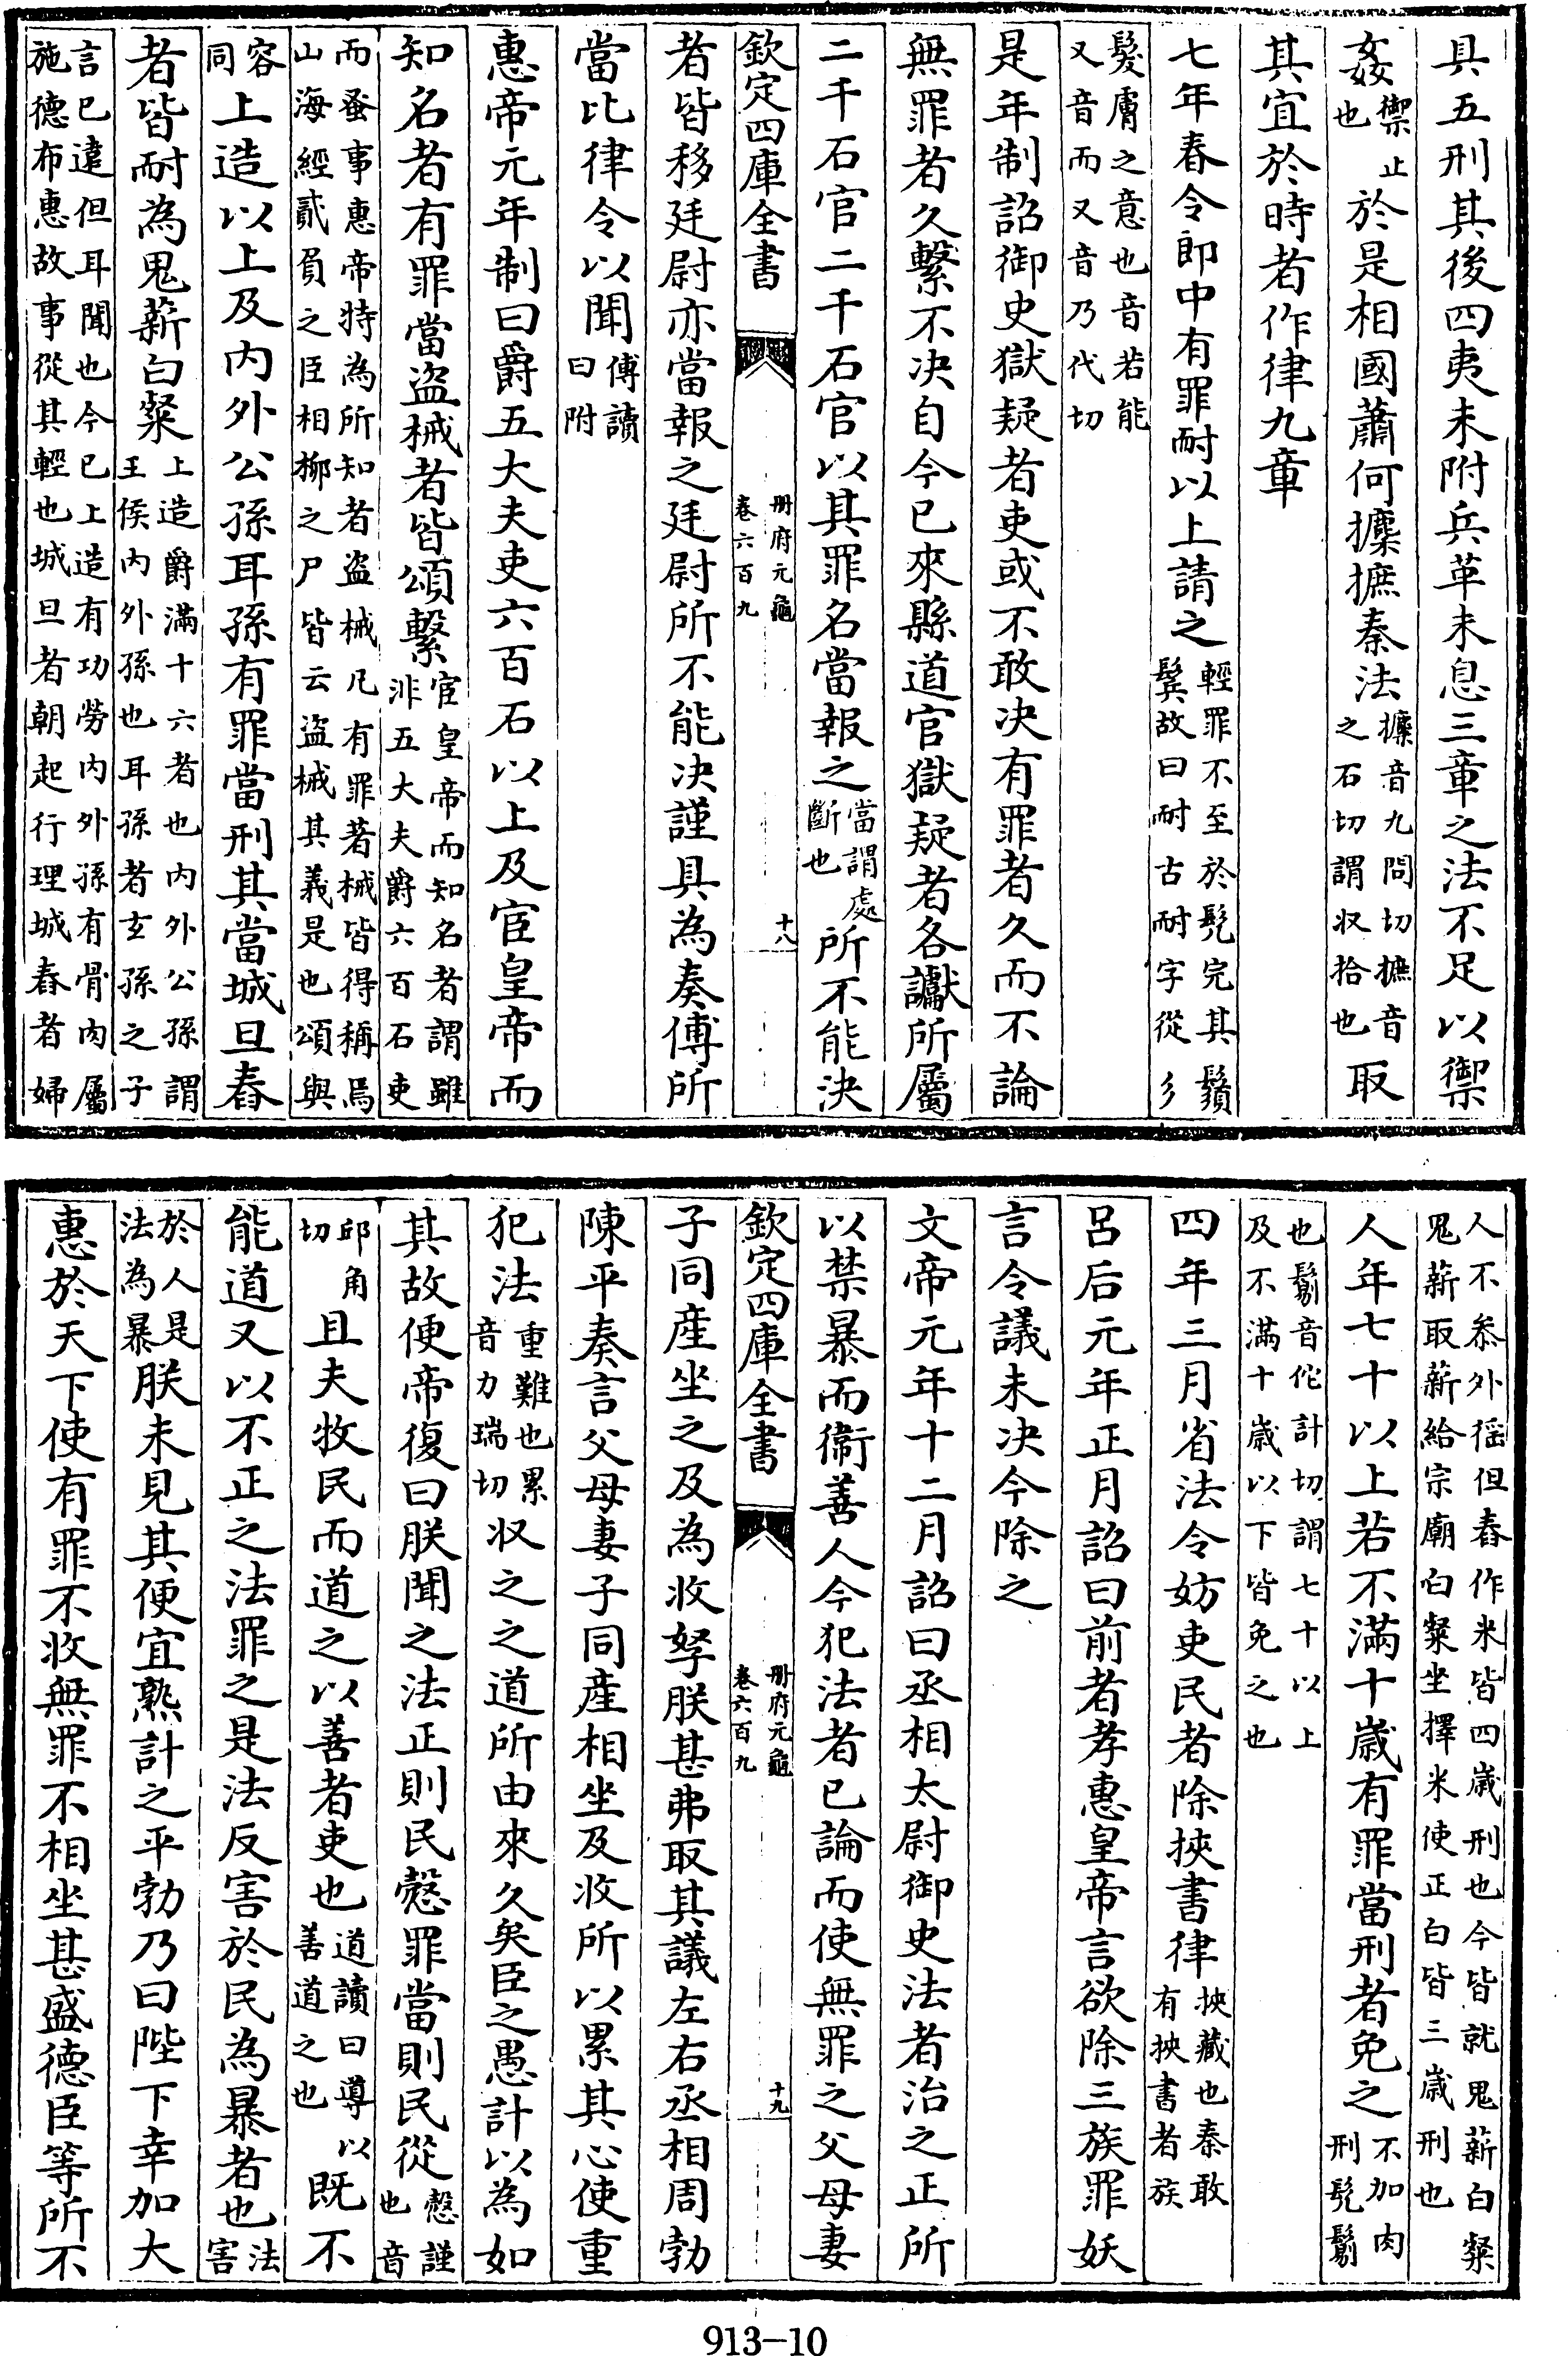 具五刑其後四夷未附兵革未息三章之法不足以禦
姦禦止也於是相國蕭何攈摭秦法攈音九問切摭音之石切謂收拾也取
其宜於時者作律九章
七年春令郎中有罪耐以上請之輕罪不至於髡完其鬚鬢故曰耐古耐字從彡
髮膚之意也音若能又音而又音乃代切
是年制詔御史獄疑者吏或不敢決有罪者久而不論
無罪者久繫不決自今已來縣道官獄疑者各讞所屬
二千石官二千石官以其罪名當報之當謂處斷也所不能決
欽定四庫全書 冊府元龜卷六百九 十八
者皆移廷尉亦當報之廷尉所不能決謹具為奏傅所
當比律令以聞傅讀曰附
惠帝元年制曰爵五大夫吏六百石以上及宦皇帝而
知名者有罪當盜械者皆頌繫宦皇帝而知名者謂雖非五大夫爵六百石吏
而蚤事惠帝特為所知者盜械凡有罪著械皆得稱焉山海經貳負之臣相桞之尸皆云盜械其義是也頌與
容同上造以上及内外公孫耳孫有罪當刑其當城旦舂
者皆耐為鬼薪白粲上造爵滿十六者也内外公孫謂王侯内外孫也耳孫者玄孫之子
言已遠但耳聞也今已上造有功勞内外孫有骨肉屬施德布惠故事從其輕也城旦者朝起行理城舂者婦
人不叅外徭但舂作米皆四歲刑也今皆就鬼薪白粲鬼薪取薪給宗廟白粲坐擇米使正白皆三歲刑也
人年七十以上若不滿十歲有罪當刑者免之不加肉刑髡鬄
也鬄音佗計切謂七十以上及不滿十歲以下皆免之也
四年三月省法令妨吏民者除挾書律挾藏也秦敢有挾書者族
呂后元年正月詔曰前者孝惠皇帝言欲除三族罪妖
言令議未決今除之
文帝元年十二月詔曰丞相太尉御史法者治之正所
以禁暴而衞善人今犯法者已論而使無罪之父母妻
欽定四庫全書 冊府元龜卷六百九 十九
子同產坐之及為收孥朕甚弗取其議左右丞相周勃
陳平奏言父母妻子同產相坐及收所以累其心使重
犯法重難也累音力瑞切收之之道所由來久矣臣之愚計以為如
其故便帝復曰朕聞之法正則民愨罪當則民從愨謹也音
邱角切且夫牧民而道之以善者吏也道讀曰導以善道之也既不
能道又以不正之法罪之是法反害於民為暴者也法害
於人是法為暴朕未見其便宜熟計之平勃乃曰陛下幸加大
惠於天下使有罪不收無罪不相坐甚盛德臣等所不
913-10